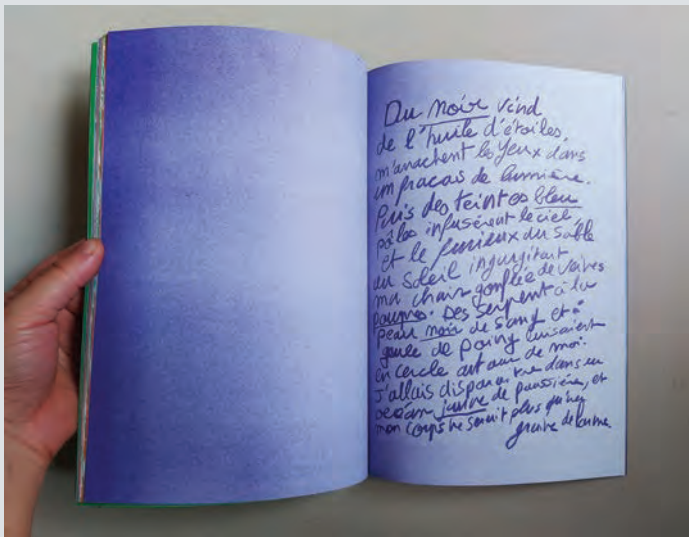 Du Noir vind
de l'huile d'étoiles,
m'arrachent les yeux dans
un fracas de lumière.
Puis des teintes bleu
pâles infusèrent le ciel
et le furieux du sable
au soleil ingurgitant
ma chair gonflée de veines
pourpres. Des serpent à la
peau noir de sang et à
gueule de poing luisaient
en cercle autour de moi.
J'allais disparaitre dans un
océan jaune de poussière, et
mon corps ne serait plus qu'une
graine de